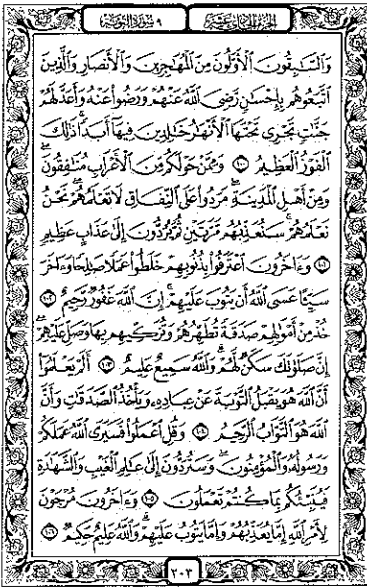 الجزء الحادي عشر
٩ سورة التوبة
وَالسَّٰبِقُونَ الْأَوَّلُونَ مِنَ الْمُهَٰجِرِينَ وَالْأَنصَارِ وَالَّذِينَ
اتَّبَعُوهُم بِإِحْسَٰنٍ رَّضِيَ اللَّهُ عَنْهُمْ وَرَضُوا عَنْهُ وَأَعَدَّ لَهُمْ
جَنَّٰتٍ تَجْرِي تَحْتَهَا الْأَنْهَٰرُ خَٰلِدِينَ فِيهَا أَبَدًا ذَٰلِكَ
الْفَوْزُ الْعَظِيمُ ١٠٠ وَمِمَّنْ حَوْلَكُم مِّنَ الْأَعْرَابِ مُنَٰفِقُونَ
وَمِنْ أَهْلِ الْمَدِينَةِ مَرَدُوا عَلَى النِّفَاقِ لَا تَعْلَمُهُمْ نَحْنُ
نَعْلَمُهُمْ سَنُعَذِّبُهُم مَّرَّتَيْنِ ثُمَّ يُرَدُّونَ إِلَىٰ عَذَابٍ عَظِيمٍ
١٠١ وَءَاخَرُونَ اعْتَرَفُوا بِذُنُوبِهِمْ خَلَطُوا عَمَلًا صَٰلِحًا وَءَاخَرَ
سَيِّئًا عَسَى اللَّهُ أَن يَتُوبَ عَلَيْهِمْ إِنَّ اللَّهَ غَفُورٌ رَّحِيمٌ ١٠٢
خُذْ مِنْ أَمْوَٰلِهِمْ صَدَقَةً تُطَهِّرُهُمْ وَتُزَكِّيهِم بِهَا وَصَلِّ عَلَيْهِمْ
إِنَّ صَلَوٰتَكَ سَكَنٌ لَّهُمْ وَاللَّهُ سَمِيعٌ عَلِيمٌ ١٠٣ أَلَمْ يَعْلَمُوا
أَنَّ اللَّهَ هُوَ يَقْبَلُ التَّوْبَةَ عَنْ عِبَادِهِ وَيَأْخُذُ الصَّدَقَٰتِ وَأَنَّ
اللَّهَ هُوَ التَّوَّابُ الرَّحِيمُ ١٠٤ وَقُلِ اعْمَلُوا فَسَيَرَى اللَّهُ عَمَلَكُمْ
وَرَسُولُهُ وَالْمُؤْمِنُونَ وَسَتُرَدُّونَ إِلَىٰ عَٰلِمِ الْغَيْبِ وَالشَّهَٰدَةِ
فَيُنَبِّئُكُم بِمَا كُنتُمْ تَعْمَلُونَ ١٠٥ وَءَاخَرُونَ مُرْجَوْنَ
لِأَمْرِ اللَّهِ إِمَّا يُعَذِّبُهُمْ وَإِمَّا يَتُوبُ عَلَيْهِمْ وَاللَّهُ عَلِيمٌ حَكِيمٌ ١٠٦
٢٠٣